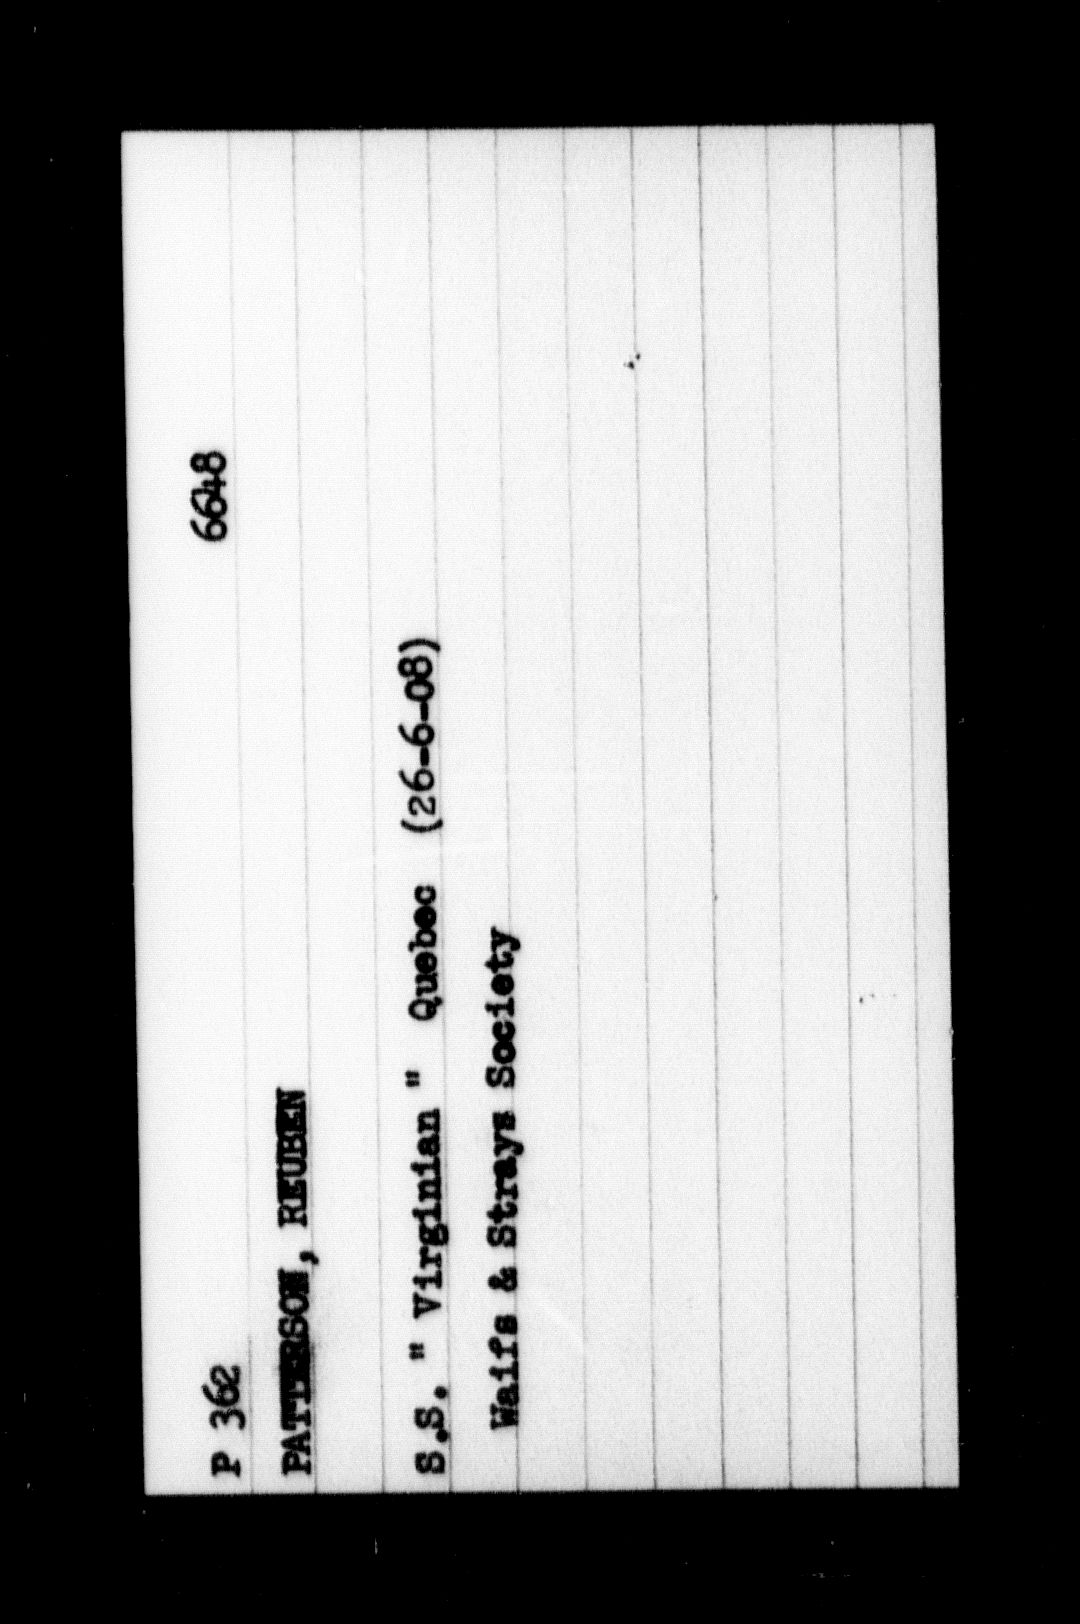 P 362 6648
PATTERSON, REUBEN
S.S. " Virginian " Quebec (26-6-08)
Waifs & Strays Society